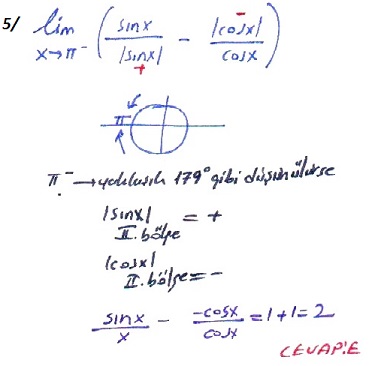 5/ lim x→π⁻ ( sinx / |sinx| − |cosx| / cosx )
+ −
π
π⁻ → yaklaşık 179° gibi düşünülürse
|sinx| = +
II. bölge
|cosx|
II. bölge = −
sinx / x − −cosx / cosx = 1 + 1 = 2
CEVAP: E